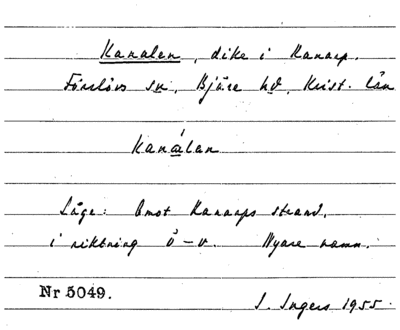 Kanalen, dike i Ranarp.
Förslövs sn, Bjäre hd, Krist. län
kanálan
Läge: Omot Ranarps strand,
i riktning ö–v. Nyare namn.
Nr 5049.
I. Ingers 1955.